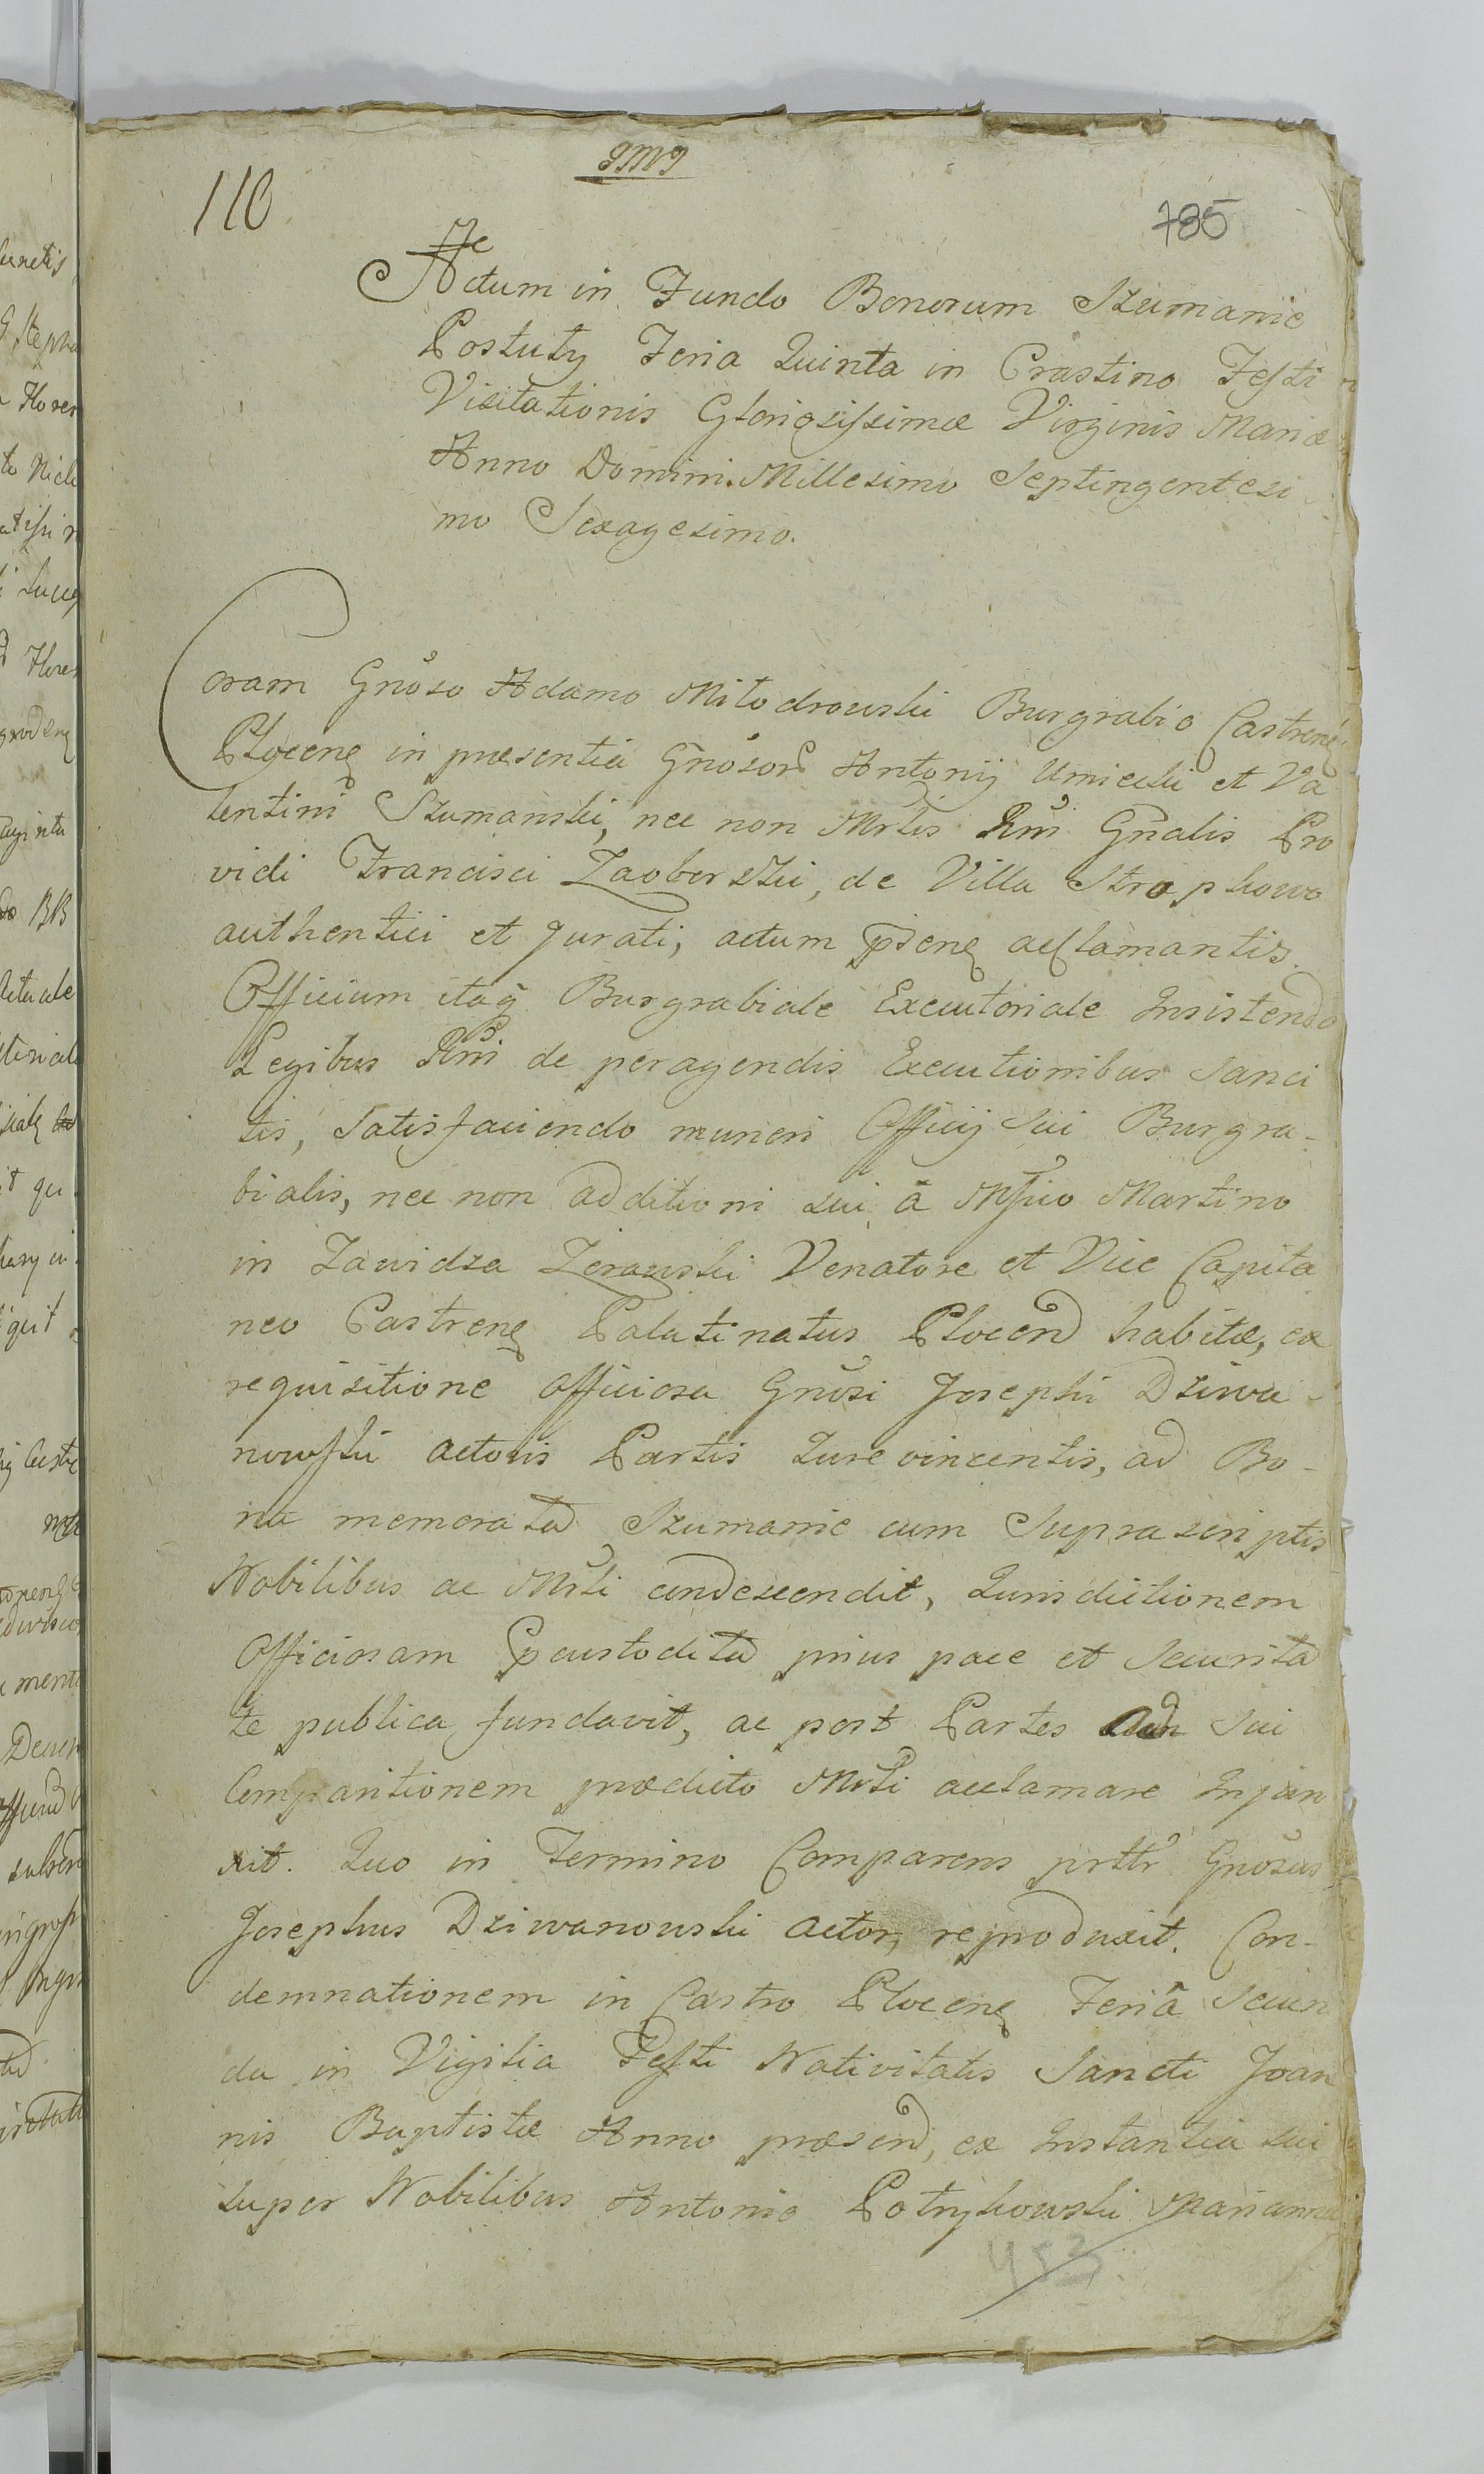 JMJ
110
785
Actum in Fundo Bonorum Szumanie
Postuty Feria Quinta in Crastino Festi
Visitationis Gloriosissimæ Virginis Mariæ
Anno Domini Millesimo Septingentesi
mo Sexagesimo.
Coram Gnoso Adamo Miłodrowski Burgrabio Castrenę
Plocenę in præsentia Gnosor Antonij Umiecki et Va
lentini Szumanski, nec non Mrlis Rni Gnalis Pro
vidi Francisci Zaoberski, de Villa Strophowo
authentici et Jurati, actum psenę acclamantis.
Officium itaq Burgrabiale Executoriale Insistendo
Legibus Rni de peragendis Executionibus Sanci
tis, Satisfaciendo muneri Officij Sui Burgra-
bialis, nec non additioni sui, â Mfico Martino
in Zawidza Zerawski Venatore et Vice Capita
neo Castrenę Palatinatus Plocen habitæ, ex
requisitione officiosa Gnosi Josephi Dziwa-
nowski actoris Partis Jure vincentis, ad Bo-
na memorata Szumanie cum Suprascriptis
Nobilibus ac Mrli condescendit, Jurisdictionem
Officiosam Pcustodita prius pace et Securita
te publica fundavit, ac post Partes ad Sui
Comparitionem prædicto Mrli acclamare Injun
xit. Quo in Termino Comparens prttr Gnosus
Josephus Dziwanowski actor, reproduxit. Con-
demnationem in Castro Plocenę Feriâ Secun
da in Vigilia Festi Nativitatis Sancti Joan
nis Baptistæ Anno præsen, ex Instantia sui
super Nobilibus Antonio Potrykowski Marianna
453